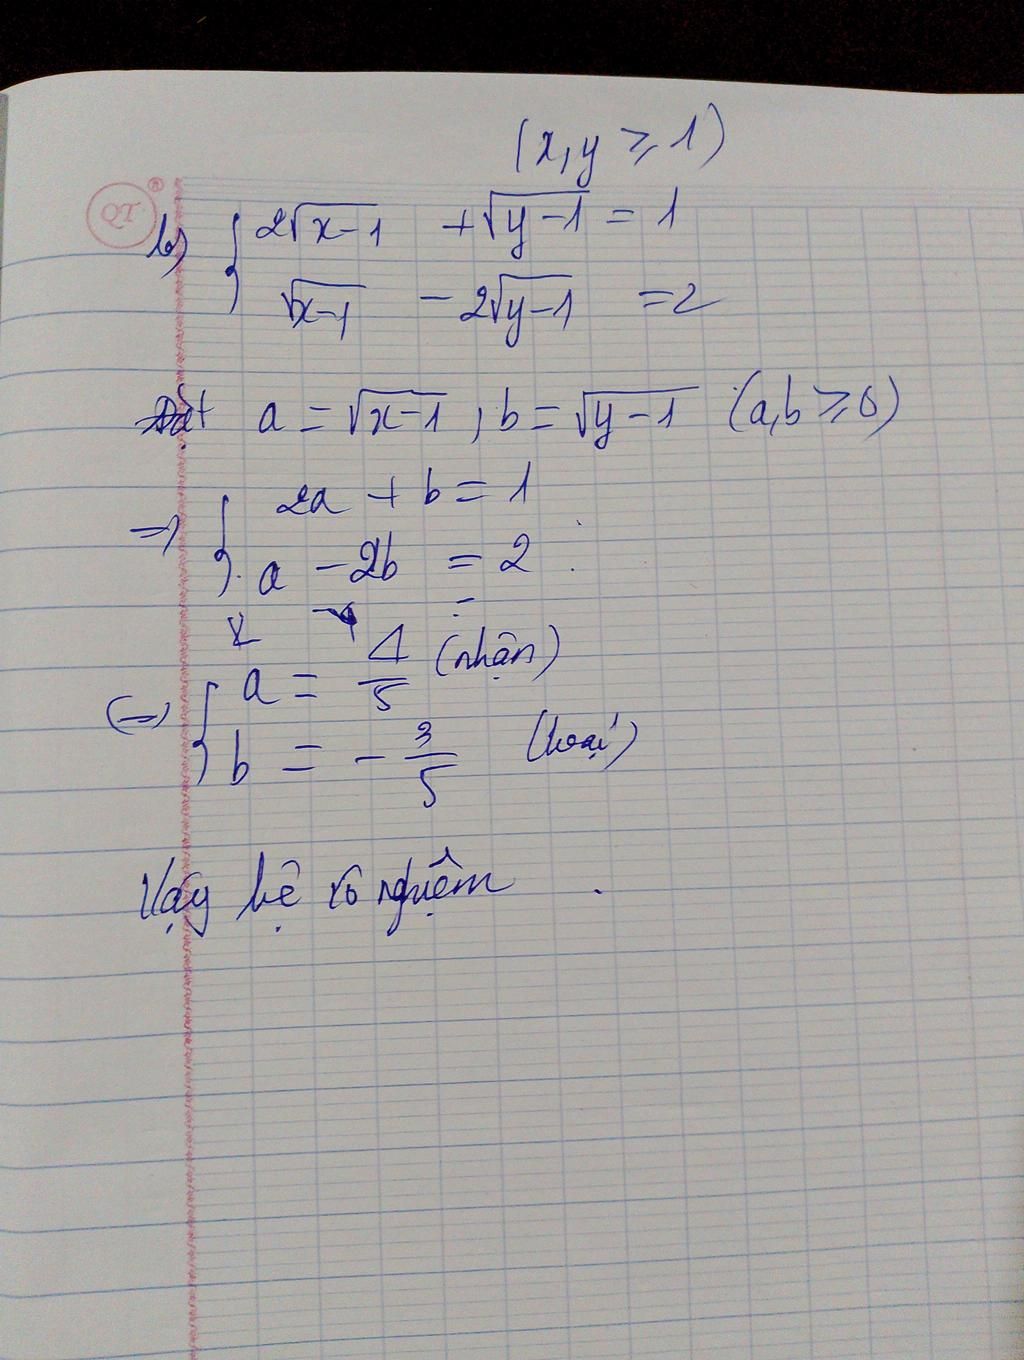 (x, y ⩾ 1)
QT ®
b) { 2√(x-1) + √(y-1) = 1
√(x-1) - 2√(y-1) = 2
Đặt a = √(x-1) ; b = √(y-1) (a,b ⩾ 0)
=> { 2a + b = 1
a - 2b = 2
(=) { a = 4/5 (nhận)
b = - 3/5 (loại)
Vậy hệ vô nghiệm